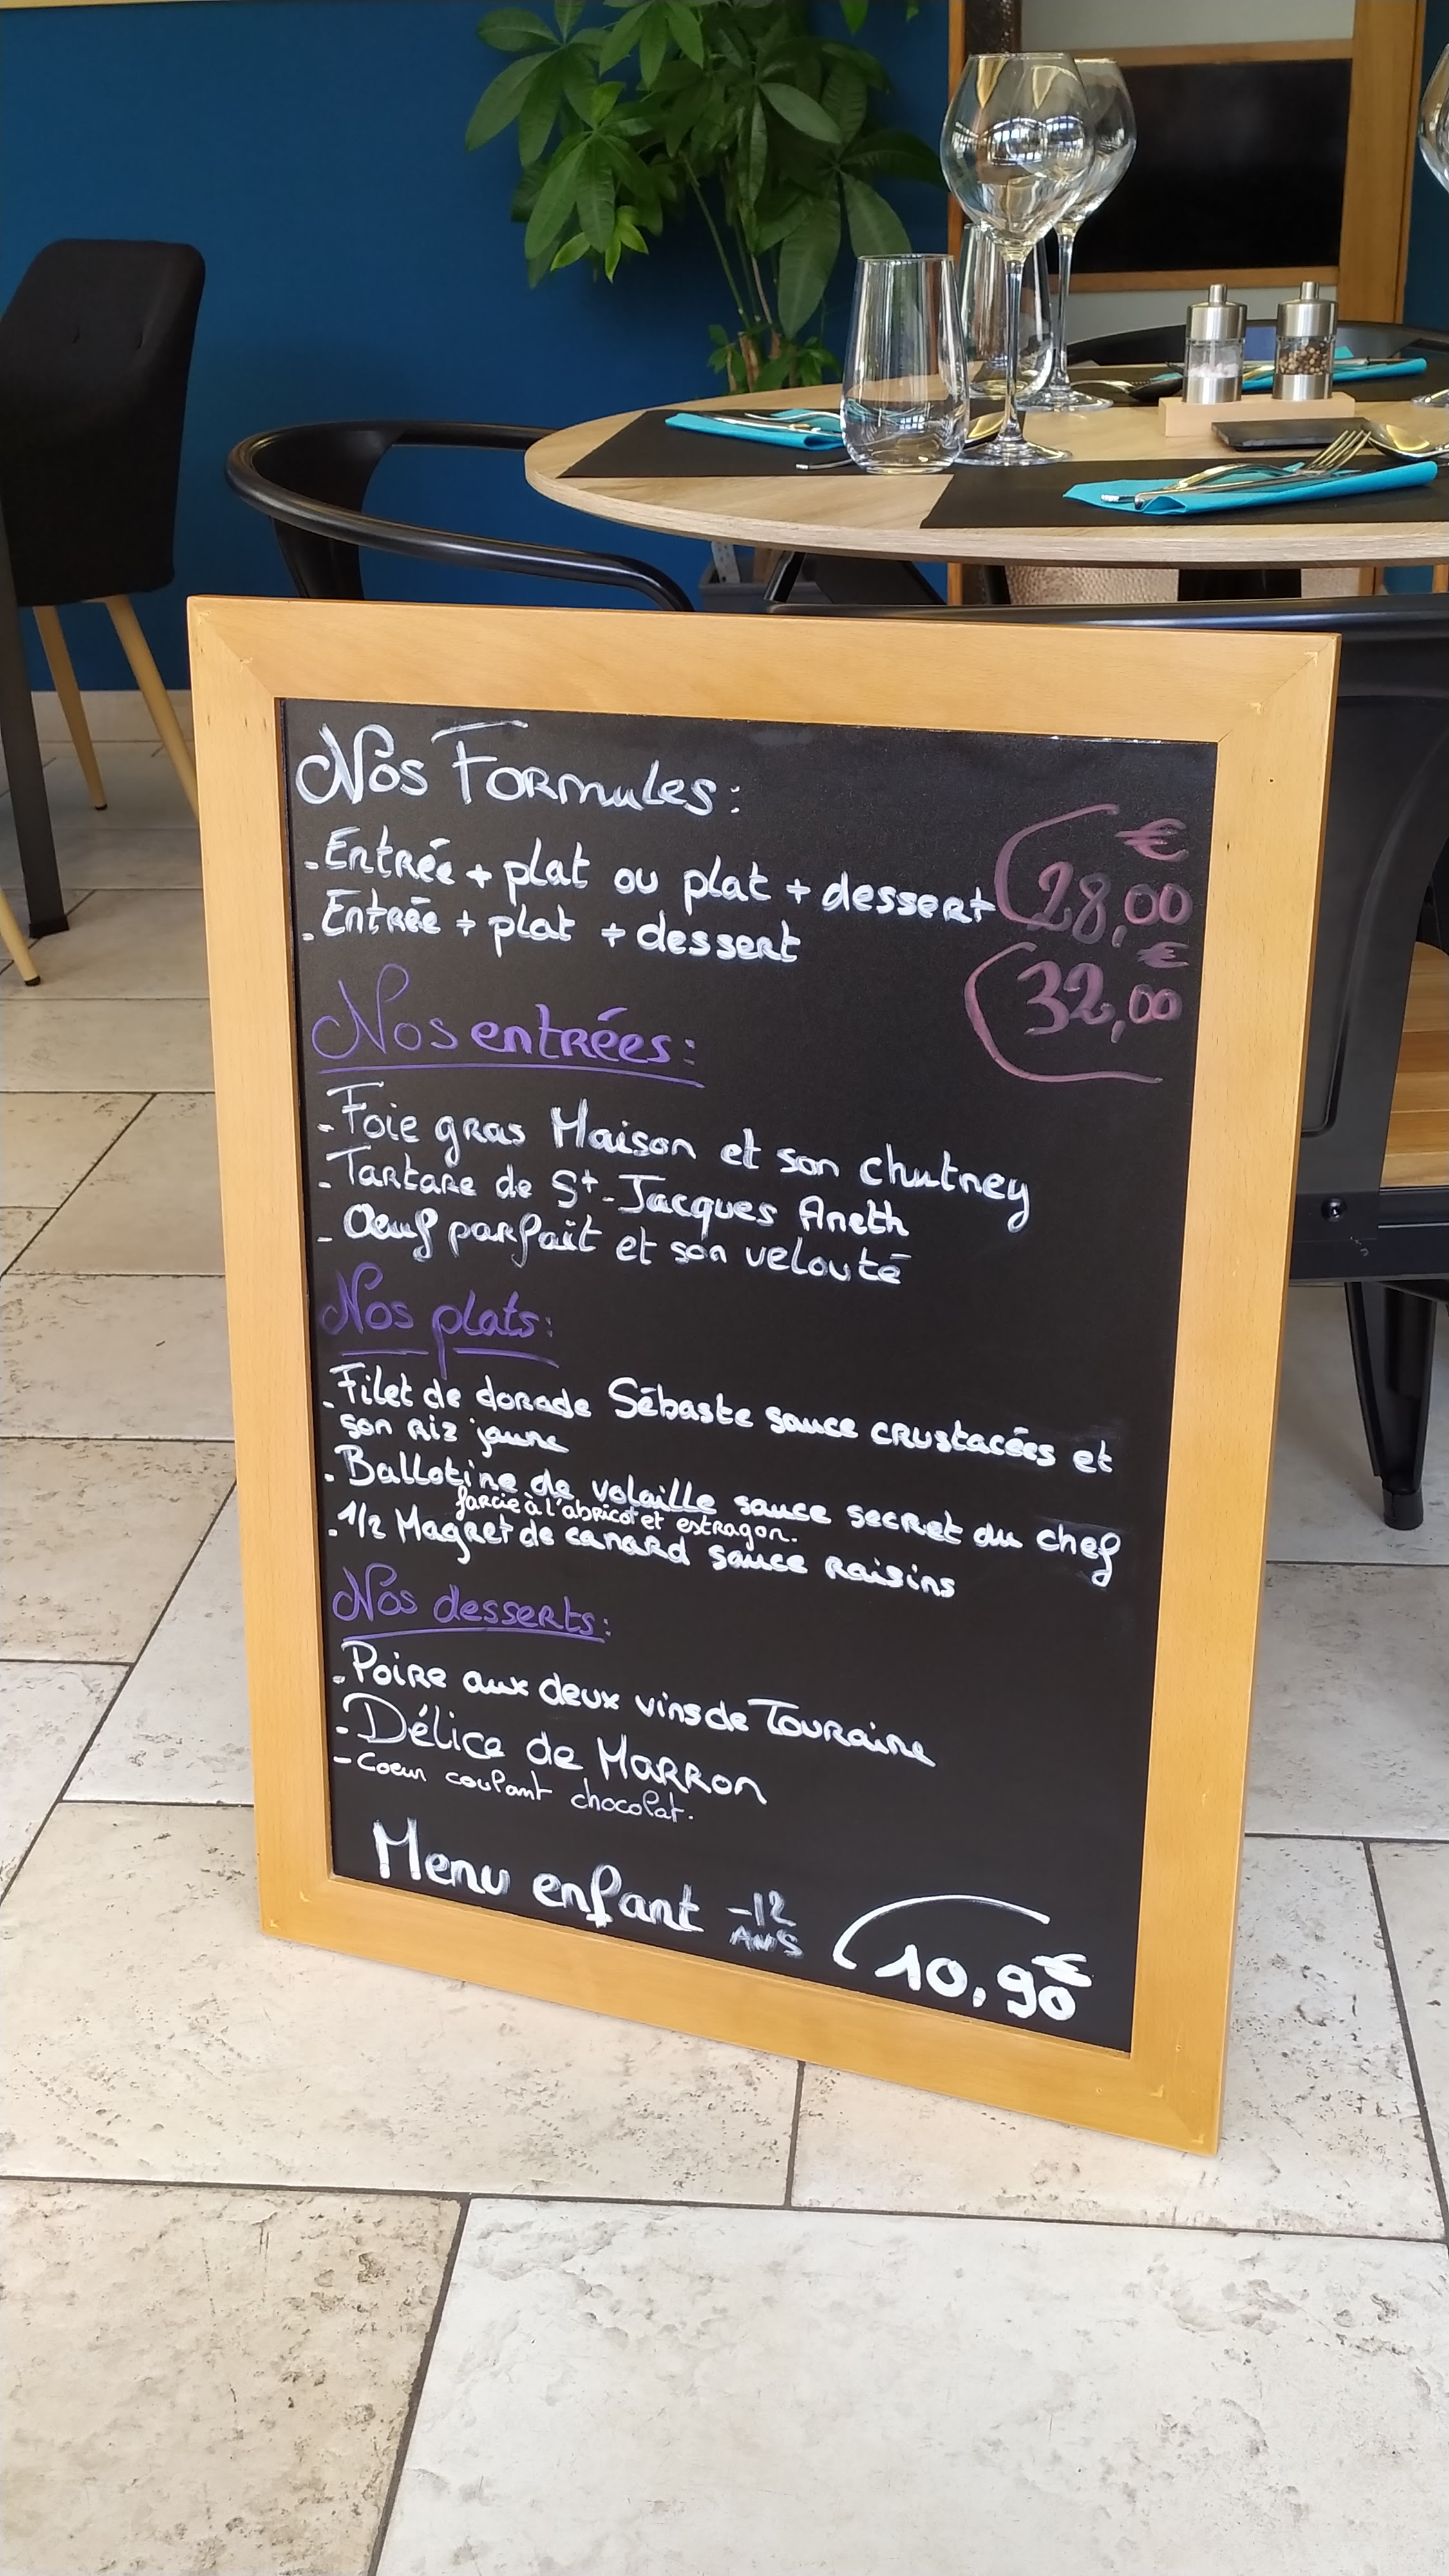 Nos Formules :
- Entrée + plat ou plat + dessert 28,00 €
- Entrée + plat + dessert 32,00 €
Nos entrées :
- Foie gras Maison et son chutney
- Tartare de St-Jacques Aneth
- Œuf parfait et son velouté
Nos plats :
- Filet de dorade Sébaste sauce crustacées et
son riz jaune
- Ballotine de volaille sauce secret du chef
farcie à l'abricot et estragon.
- 1/2 Magret de canard sauce raisins
Nos desserts :
- Poire aux deux vins de Touraine
- Délice de Marron
- Coeur coulant chocolat.
Menu enfant -12 ANS 10,90 €